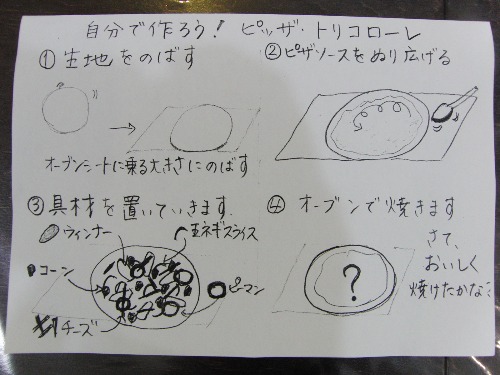 自分で作ろう! ピッザ・トリコローレ
①生地をのばす
オーブンシートに乗る大きさにのばす
②ピザソースをぬり広げる
③具材を置いていきます
ウィンナー
玉ネギスライス
コーン
ピーマン
チーズ
④オーブンで焼きます
さて、
おいしく
焼けたかな?
?